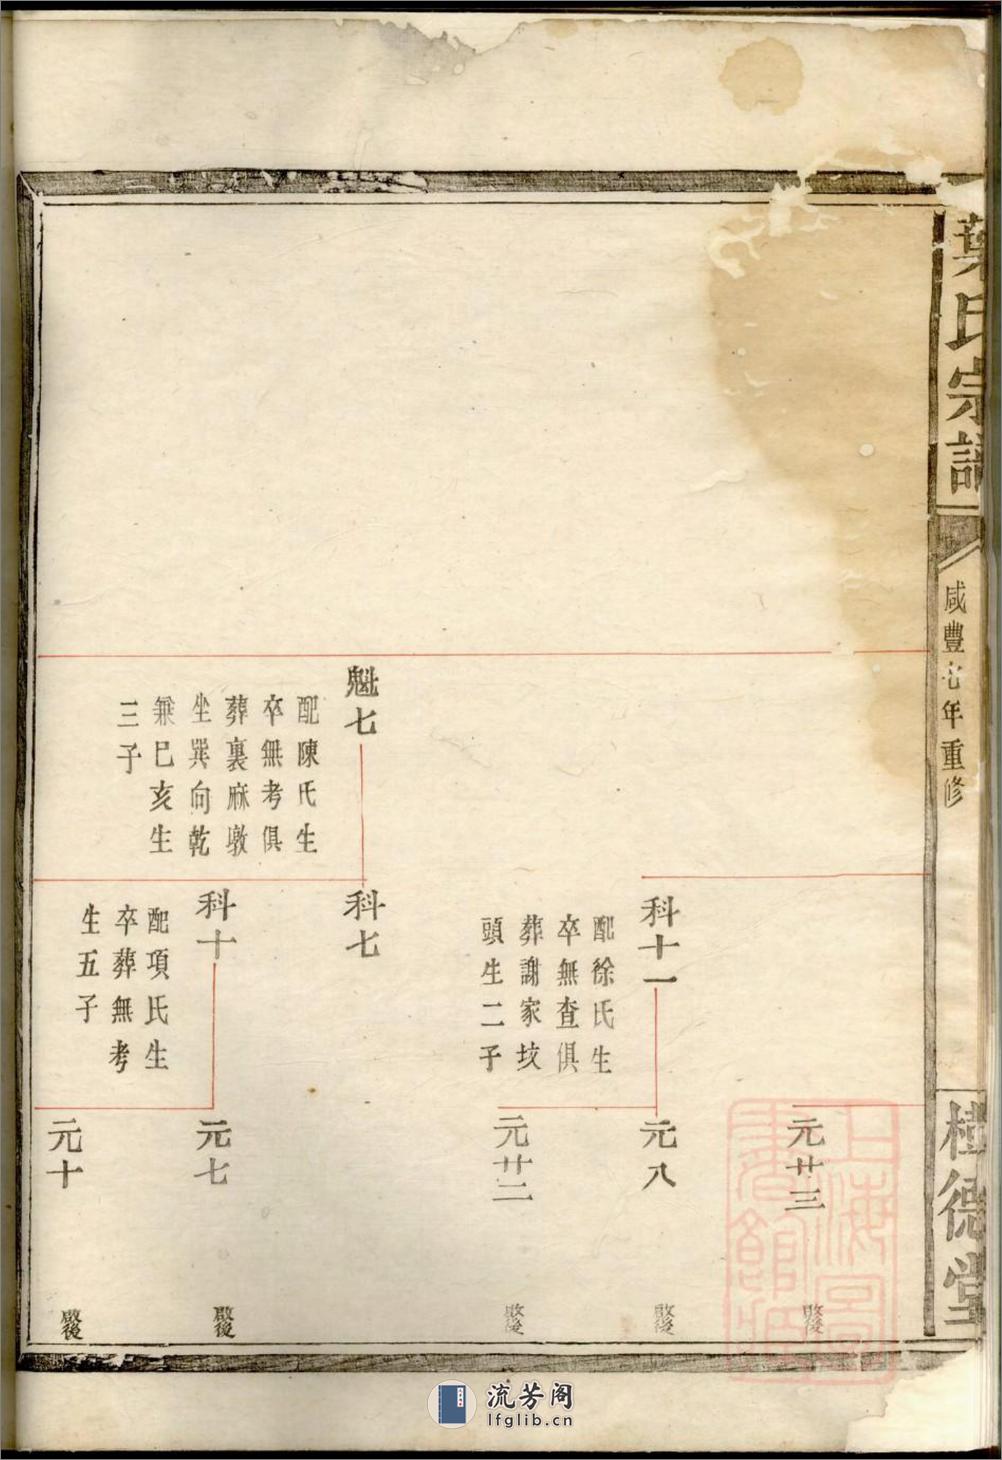 葉氏宗譜
咸豐七年重修
桂德堂
元廿三
啟後
科十一
配徐氏生
卒無查俱
葬謝家坟
頭生二子
元八
啟後
元廿二
啟後
魁七
配陳氏生
卒無考俱
葬裏麻墩
坐巽向乾
兼巳亥生
三子
科七
科十
配項氏生
卒葬無考
生五子
元七
啟後
元十
啟後
上海圖書館藏
流芳阁
lfglib.cn